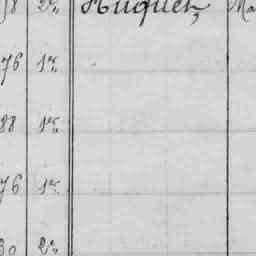 18 2e Huguet, Ma
76 1er
88 1er
76 1er
30 2e